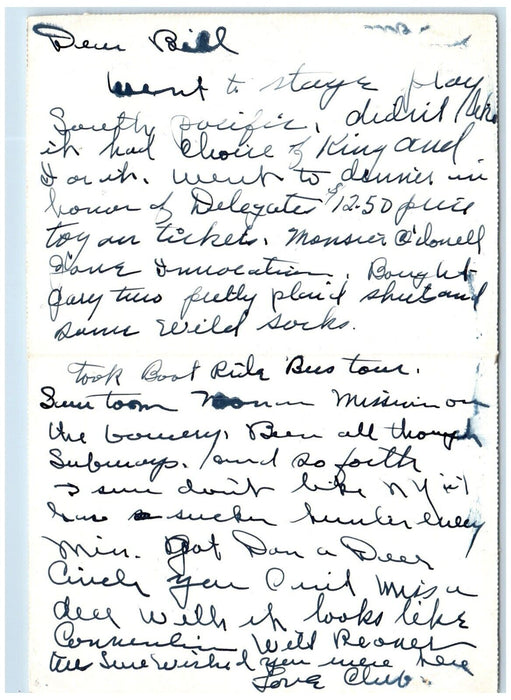 Dear Bill
Went to stage play
South pacific, didn't like
it had choice of King and
I or it. Went to dinner in
honor of Delegates $12.50 price
tag on tickets. Monsier O'donell
Gave Invocation. Bought
Gary two pretty plaid shirt and
some wild socks.
took Boat Ride Bus tour.
Mission on
the bowery. Been all through
Subways. and so forth
I sure don't like NY it
has a sucker hunter every
Min. Got Don a Deer
you didn't miss a
deer well it looks like
Convention Will
Sure wished you were here
Love Club